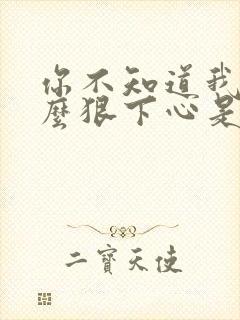 你不知道我
麼狠下心是
二寶天使